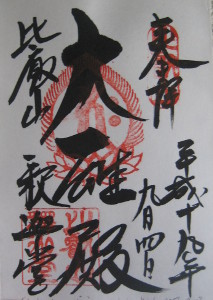 奉拝
平成十九年
九月四日
大雄殿
比叡山
釈迦堂